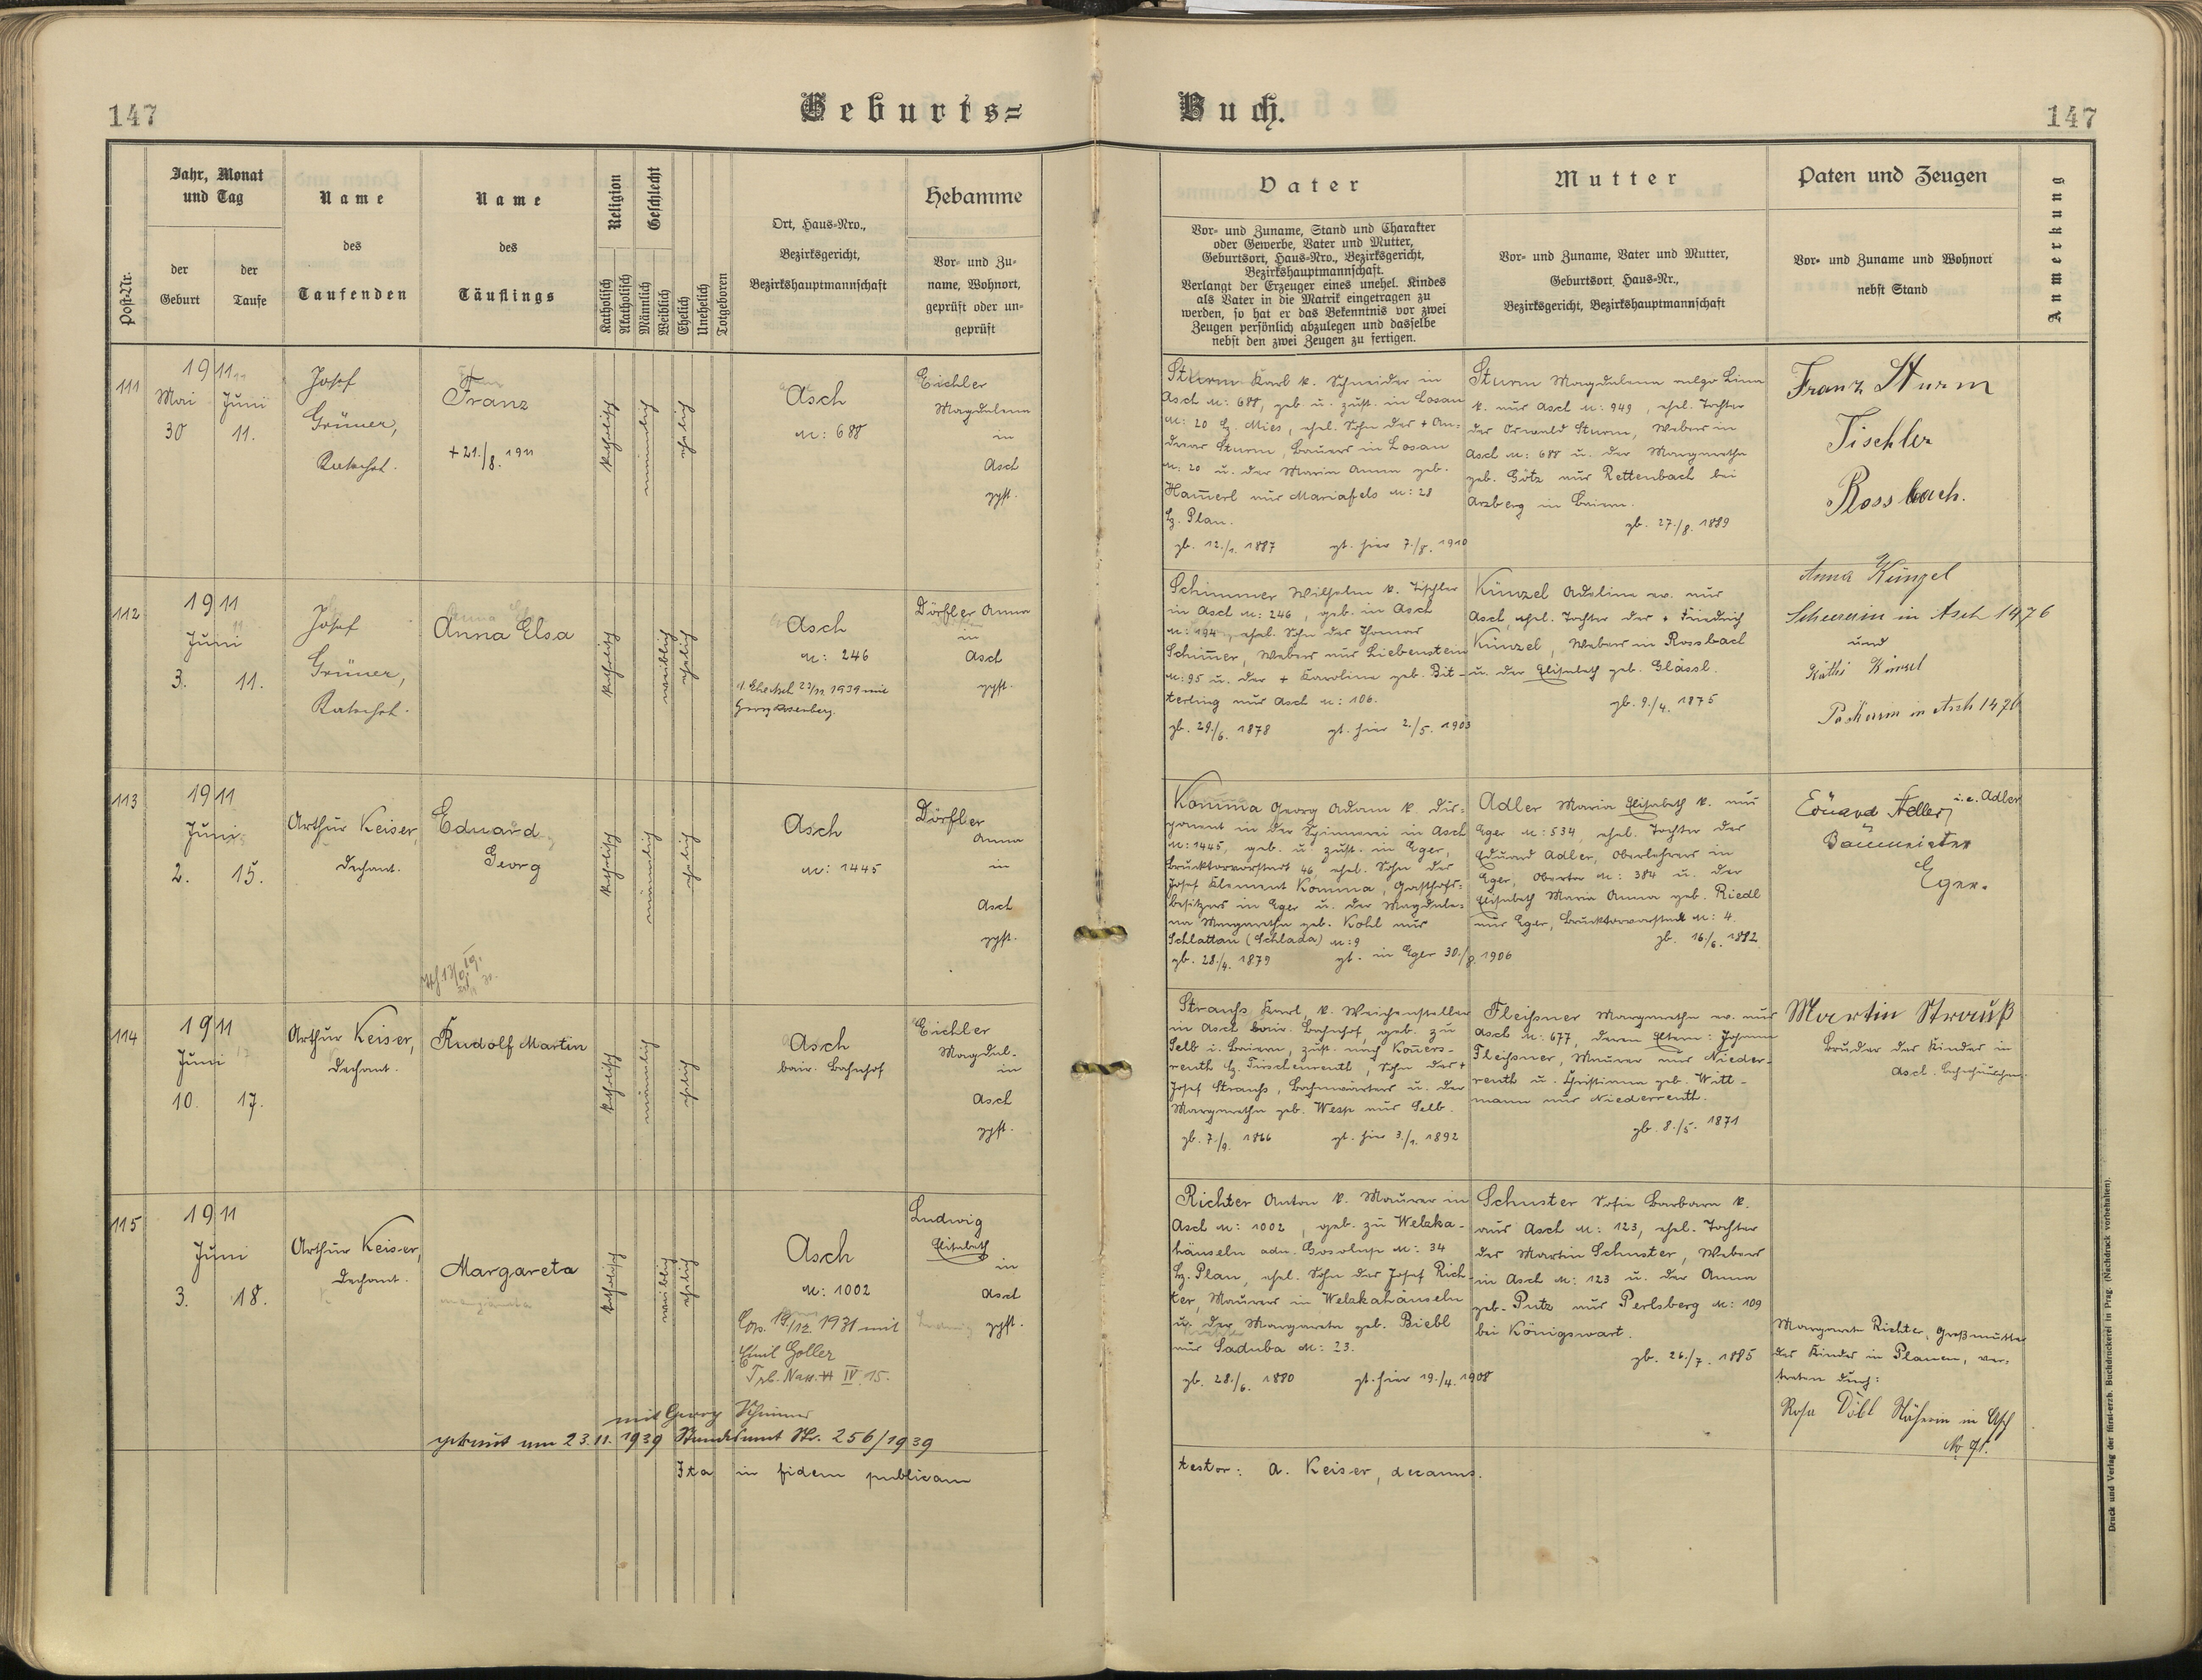 147
Geburts=
Buch.
147
Post-Nr.
Jahr, Monat
und Tag
der
Geburt
der
Taufe
Name
des
Taufenden
Name
des
Täuflings
Religion
Katholisch
Akatholisch
Geschlecht
Männlich
Weiblich
Ehelich
Unehelich
Totgeboren
Ort, Haus=Nro.,
Bezirksgericht,
Bezirkshauptmannschaft
Hebamme
Vor= und Zu=
name, Wohnort,
geprüft oder un=
geprüft
Vater
Vor= und Zuname, Stand und Charakter
oder Gewerbe, Vater und Mutter,
Geburtsort, Haus=Nro., Bezirksgericht,
Bezirkshauptmannschaft.
Verlangt der Erzeuger eines unehel. Kindes
als Vater in die Matrik eingetragen zu
werden, so hat er das Bekenntnis vor zwei
Zeugen persönlich abzulegen und dasselbe
nebst den zwei Zeugen zu fertigen.
Mutter
Vor= und Zuname, Vater und Mutter,
Geburtsort, Haus=Nr.,
Bezirksgericht, Bezirkshauptmannschaft
Paten und Zeugen
Vor= und Zuname und Wohnort
nebst Stand
Anmerkung
111
1911
Mai Juni
30 11.
Josef
Grüner,
Katechet.
Franz
+ 21./8. 1911
katholisch
männlich
ehelich
Asch
N: 688
Eichler
Magdalena
in
Asch
gpft.
Sturm Karl k. Schneider in
Asch N: 688, geb. u. zust. in Losau
N: 20 Bz. Mies, ehel. Sohn des + An-
dreas Sturm, Bauers in Losau
N: 20 u. der Maria Anna geb.
Ham̄erl aus Mariafels N: 28
Bz. Plan.
gb. 12./1. 1887 gt. hier 7./8. 1910
Sturm Magdalena vulgo Lina
k. aus Asch N: 949, ehel. Tochter
des Oswald Sturm, Webers in
Asch N: 688 u. der Margaretha
geb. Götz aus Rettenbach bei
Arzberg in Baiern.
gb. 27./8. 1889
Franz Sturm
Tischler
Rossbach.
112
1911
Juni
3. 11.
Josef
Grüner,
Katechet.
Anna Elsa
katholisch
weiblich
ehelich
Asch
N: 246
1. Ehe Asch 23/11. 1939 mit
Georg Rosenberg.
Dörfler Anna
in
Asch
gpft.
Schimmer Wilhelm k. Tischler
in Asch N: 246, geb. in Asch
N: 194, ehel. Sohn des Thomas
Schim̄er, Webers aus Liebenstein
N: 95 u. der + Karoline geb. Bit-
terling aus Asch N: 106.
gb. 29./6. 1878 gt. hier 2./5. 1903
Künzel Adeline ev. aus
Asch, ehel. Tochter des + Friedrich
Künzel, Webers in Rossbach
u. der Elisabeth geb. Glässl.
gb. 9./4. 1875
Anna Künzel
Scheererin in Asch 1476
und
Käthi Künzel
in Asch 1476
113
1911
Juni
2. 15.
Arthur Keiser,
Dechant.
Eduard
Georg
katholisch
männlich
ehelich
Asch
N: 1445
Dörfler
Anna
in
Asch
gpft.
Kom̄a Georg Adam k. Dis-
ponent in der Spinnerei in Asch
N: 1445, geb. u. zust. in Eger,
Brucktorvorstadt 46, ehel. Sohn des
Josef Klement Kom̄a, Gasthofs-
besitzers in Eger u. der Magdale-
na Margaretha geb. Kohl aus
Schlattau (Schlada) N: 9
gb. 28./4. 1879 gt. in Eger 30./8. 1906
Adler Maria Elisabeth k. aus
Eger N: 534, ehel. Tochter des
Eduard Adler, Oberlehrers in
Eger, Obertor N: 384 u. der
Elisabeth Maria Anna geb. Riedl
aus Eger, Brucktorvorstadt N: 4.
gb. 16./6. 1882
Eduard Adler, i.e. Adler
Baumeister
Eger.
114
1911
Juni
10. 17.
Arthur Keiser,
Dechant.
Rudolf Martin
katholisch
männlich
ehelich
Asch
bair. Bahnhof
Eichler
Magdal.
in
Asch
gpft.
Strauß Karl, k. Weichensteller
in Asch bair. Bahnhof, geb. zu
Selb i. Baiern, zust. nach Kon̄ers-
reuth Bz. Tirschenreuth, Sohn des +
Josef Strauß, Bahnwärters u. der
Margaretha geb. Wesp aus Selb.
gb. 7./9. 1866 gt. hier 3./1. 1892
Fleißner Margaretha ev. aus
Asch N: 677, deren Eltern: Johann
Fleißner, Maurer aus Nieder-
reuth u. Christiana geb. Witt-
mann aus Niederreuth.
gb. 8./5. 1871
Martin Strauß
Bruder des Kindes in
Asch.
115
1911
Juni
3. 18.
Arthur Keiser,
Dechant.
Margareta
katholisch
weiblich
ehelich
Asch
N: 1002
Cop. 19./12. 1931 mit
Emil Goller
IV. 15.
Ludwig
Elisabeth
in
Asch
gpft.
mit Georg Schimmer
getraut am 23.11.1939 Standesamt Nr. 256/1939
Richter Anton k. Maurer in
Asch N: 1002, geb. zu Welzka-
häuseln adn. Gosolup N: 34
Bz. Plan, ehel. Sohn des Josef Rich-
ter, Maurers in Welzkahäuseln
u. der Margareta geb. Biebl
aus Saduba N: 23.
gb. 28./6. 1880 gt. hier 19./4. 1908
Schuster Sofie Barbara k.
aus Asch N: 123, ehel. Tochter
des Martin Schuster, Webers
in Asch N: 123 u. der Anna
geb. Putz aus Perlsberg N: 109
bei Königswart.
gb. 26./7. 1885
Margareta Richter, Großmutter
des Kindes in Planen, ver-
treten durch:
Rosa Döbl Näherin in Asch
Ita in fidem publicam
testor: A. Keiser, decanus.
Druck und Verlag der fürst-erzb. Buchdruckerei in Prag. (Nachdruck vorbehalten).